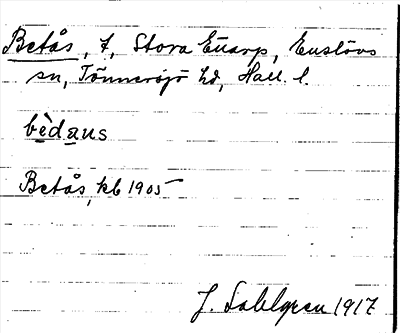 Betås, t, Stora Ettarp, Enslövs
sn, Tönnersjö hd, Hall. l.
bèdaus
Betås, kb 1905
J. Sahlgren 1917